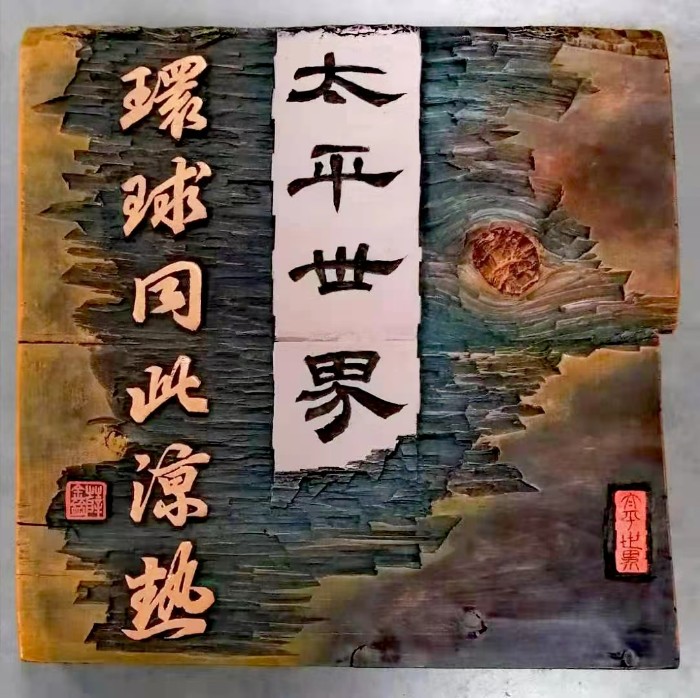 太平世界
環球同此涼熱
太平世界